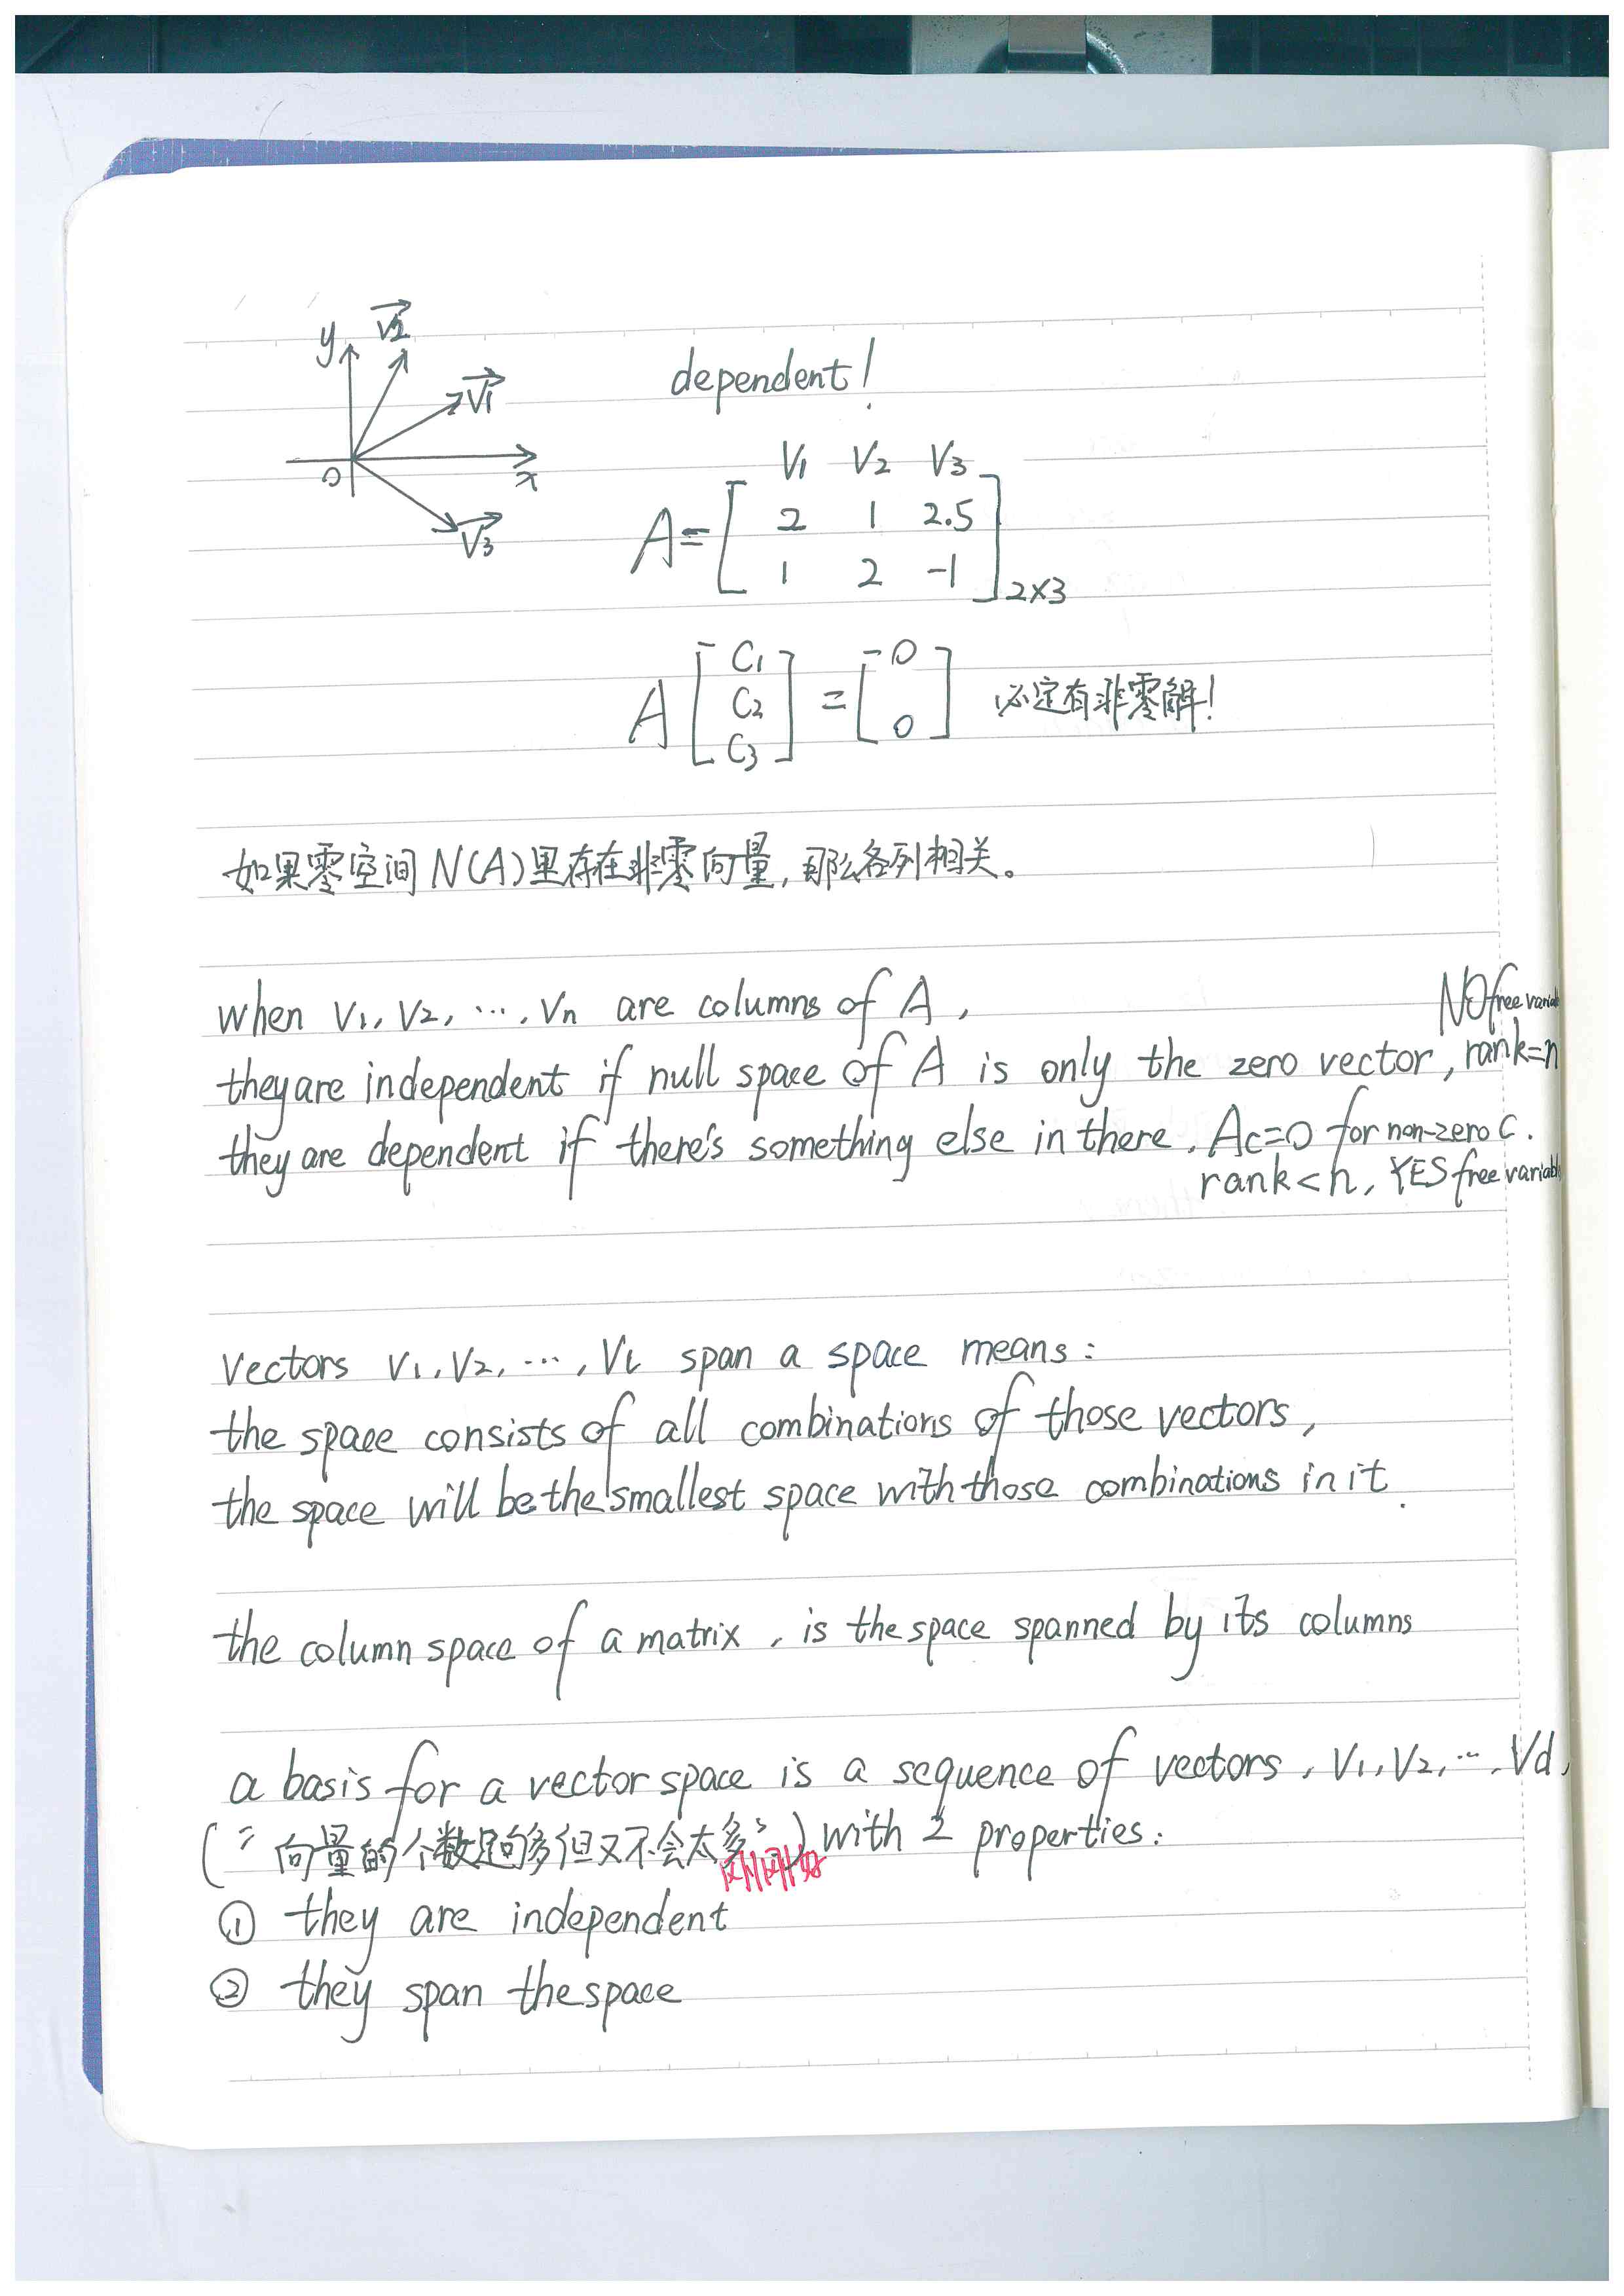 y v2
v1
0 x
v3
dependent!
V1 V2 V3
A = [ 2 1 2.5
1 2 -1 ] 2×3
A [ C1 C2 C3 ] = [ 0 0 ] 必定有非零解!
如果零空间 N(A) 里存在非零向量, 那么各列相关。
when V1, V2, ..., Vn are columns of A, NO free variabl
they are independent if null space of A is only the zero vector, rank=n
they are dependent if there's something else in there, Ac=0 for non-zero C.
rank<n, YES free variabl
vectors V1, V2, ..., Vl span a space means:
the space consists of all combinations of those vectors,
the space will be the smallest space with those combinations in it.
the column space of a matrix, is the space spanned by its columns
a basis for a vector space is a sequence of vectors, V1, V2, ..., Vd,
("向量的个数足够多但又不会太多") with 2 properties:
刚刚好
① they are independent
② they span the space